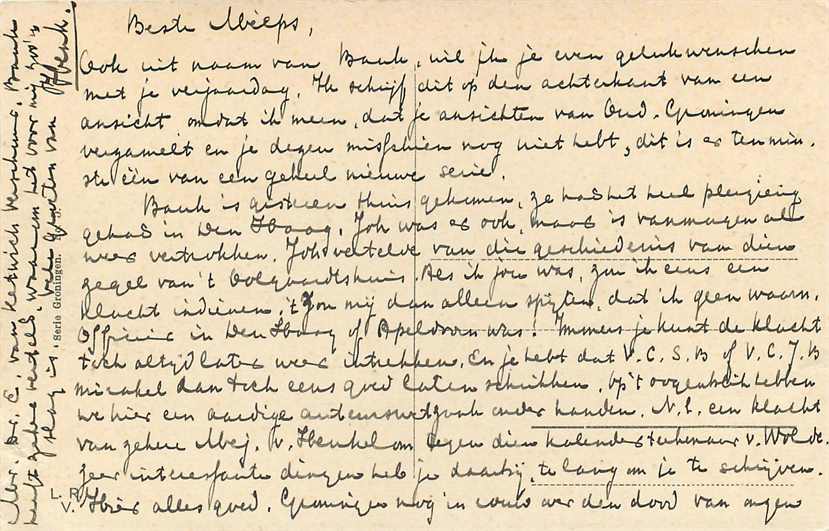 Beste Mieps,
Ook uit naam van Bauk, wil ik je even gelukwenschen
met je verjaardag. Ik schrijf dit op den achterkant van een
ansicht omdat ik meen, dat je ansichten van Oud-Groningen
verzamelt en je degen misschien nog niet hebt, dit is er tenmin-
ste één van een geheel nieuwe serie.
Bauk is gisteren thuis gekomen, ze had het heel plezierig
gehad in Den Haag. Joh was er ook, maar is vanmorgen al
weer vertrokken. Joh vertelde van die geschiedenis van dien
zegel van 't Volgaardtshuis. Als ik jou was, zou ik eens een
klacht indienen, 't zou mij dan alleen spijten, dat ik geen waarn.
Officier in Den Haag of Apeldoorn was! Immers je kunt de klacht
toch altijd later weer intrekken. En je hebt dat V.C.S.B of V.C.J.B
mirakel dan toch eens goed laten schrikken. Op 't oogenblik hebben
we hier een aardige auteurswetzaak onder handen. N.l. een klacht
van zekere Mej. v. Henkelom tegen dien kalenderteekenaar v. Wolde.
zeer interessante dingen heb je daarbij, te lang om je te schrijven.
Hier alles goed. Groningen nog in rouw over den dood van
Mr. Dr. C. van
heeft zekere
slag is. Vele groeten van Henk.
Serie Groningen.
L. R.
V.